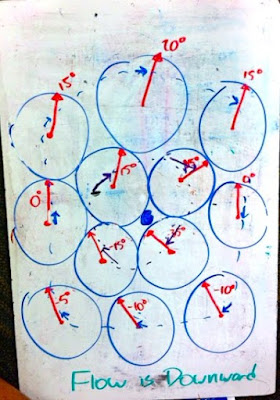 20°
15°
15°
15°
0°
0°
-15°
-5°
-10°
-10°
Flow is Downward